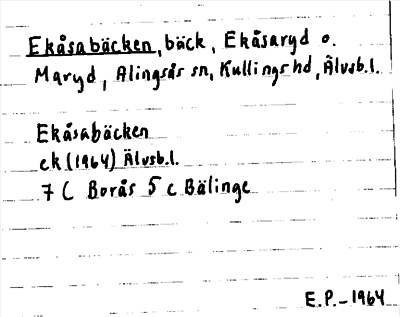 Ekåsabäcken, bäck, Ekåsaryd o.
Maryd, Alingsås sn, Kullings hd, Älvsb.l.
Ekåsabäcken
ek (1964) Älvsb.l.
7 C Borås 5 c Bälinge
E.P. - 1964